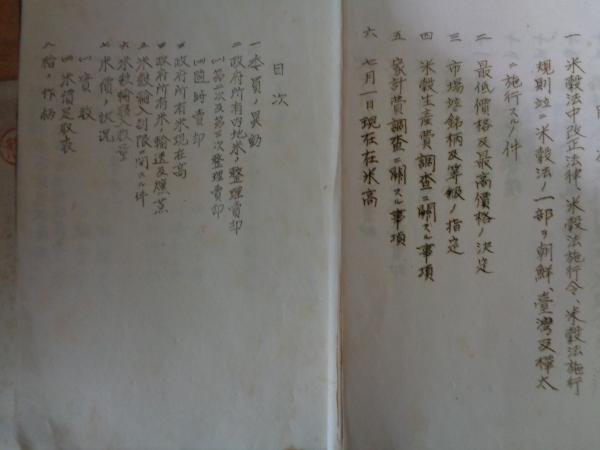 一 米穀法中改正法律、米穀法施行令、米穀法施行
規則並ニ米穀法ノ一部ヲ朝鮮、臺灣及樺太
ニ施行スルノ件
二 最低價格及最高價格ノ決定
三 市場竝銘柄及等級ノ指定
四 米穀生産費調査ニ關スル事項
五 家計費調査ニ關スル事項
六 七月一日現在在米高
目次
一 委員ノ異動
二 政府所有内地米ノ整理賣却
(一) 第 次及第 次整理賣却
(二) 隨時賣却
政府所有米現在高
政府所有米ノ輸送及燻蒸
米穀輸入制限ニ關スル件
六 米穀輸 數量
七 米價ノ狀況
(一) 實數
(二) 米價足取表
八 稻ノ作柄